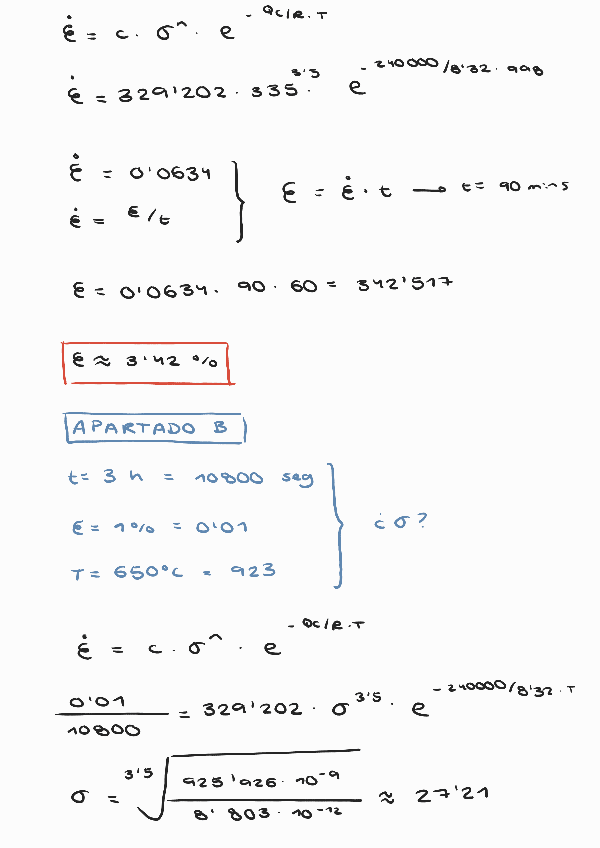 ε̇ = c · σ^n · e^(-Qc/R·T)
ε̇ = 329'202 · 335^3'5 · e^(-240000/8'32 · 998)
ε̇ = 0'0634
ε̇ = ε/t
ε = ε̇ · t → t = 90 mins
ε = 0'0634 · 90 · 60 = 342'517
ε ≈ 3'42 %
APARTADO B
t = 3 h = 10800 seg
ε = 1% = 0'01
T = 650°C = 923
¿σ?
ε̇ = c · σ^n · e^(-Qc/R·T)
0'01/10800 = 329'202 · σ^3'5 · e^(-240000/8'32 · T)
σ = ^3'5√(925'926 · 10^-9 / 8'803 · 10^-12) ≈ 27'21